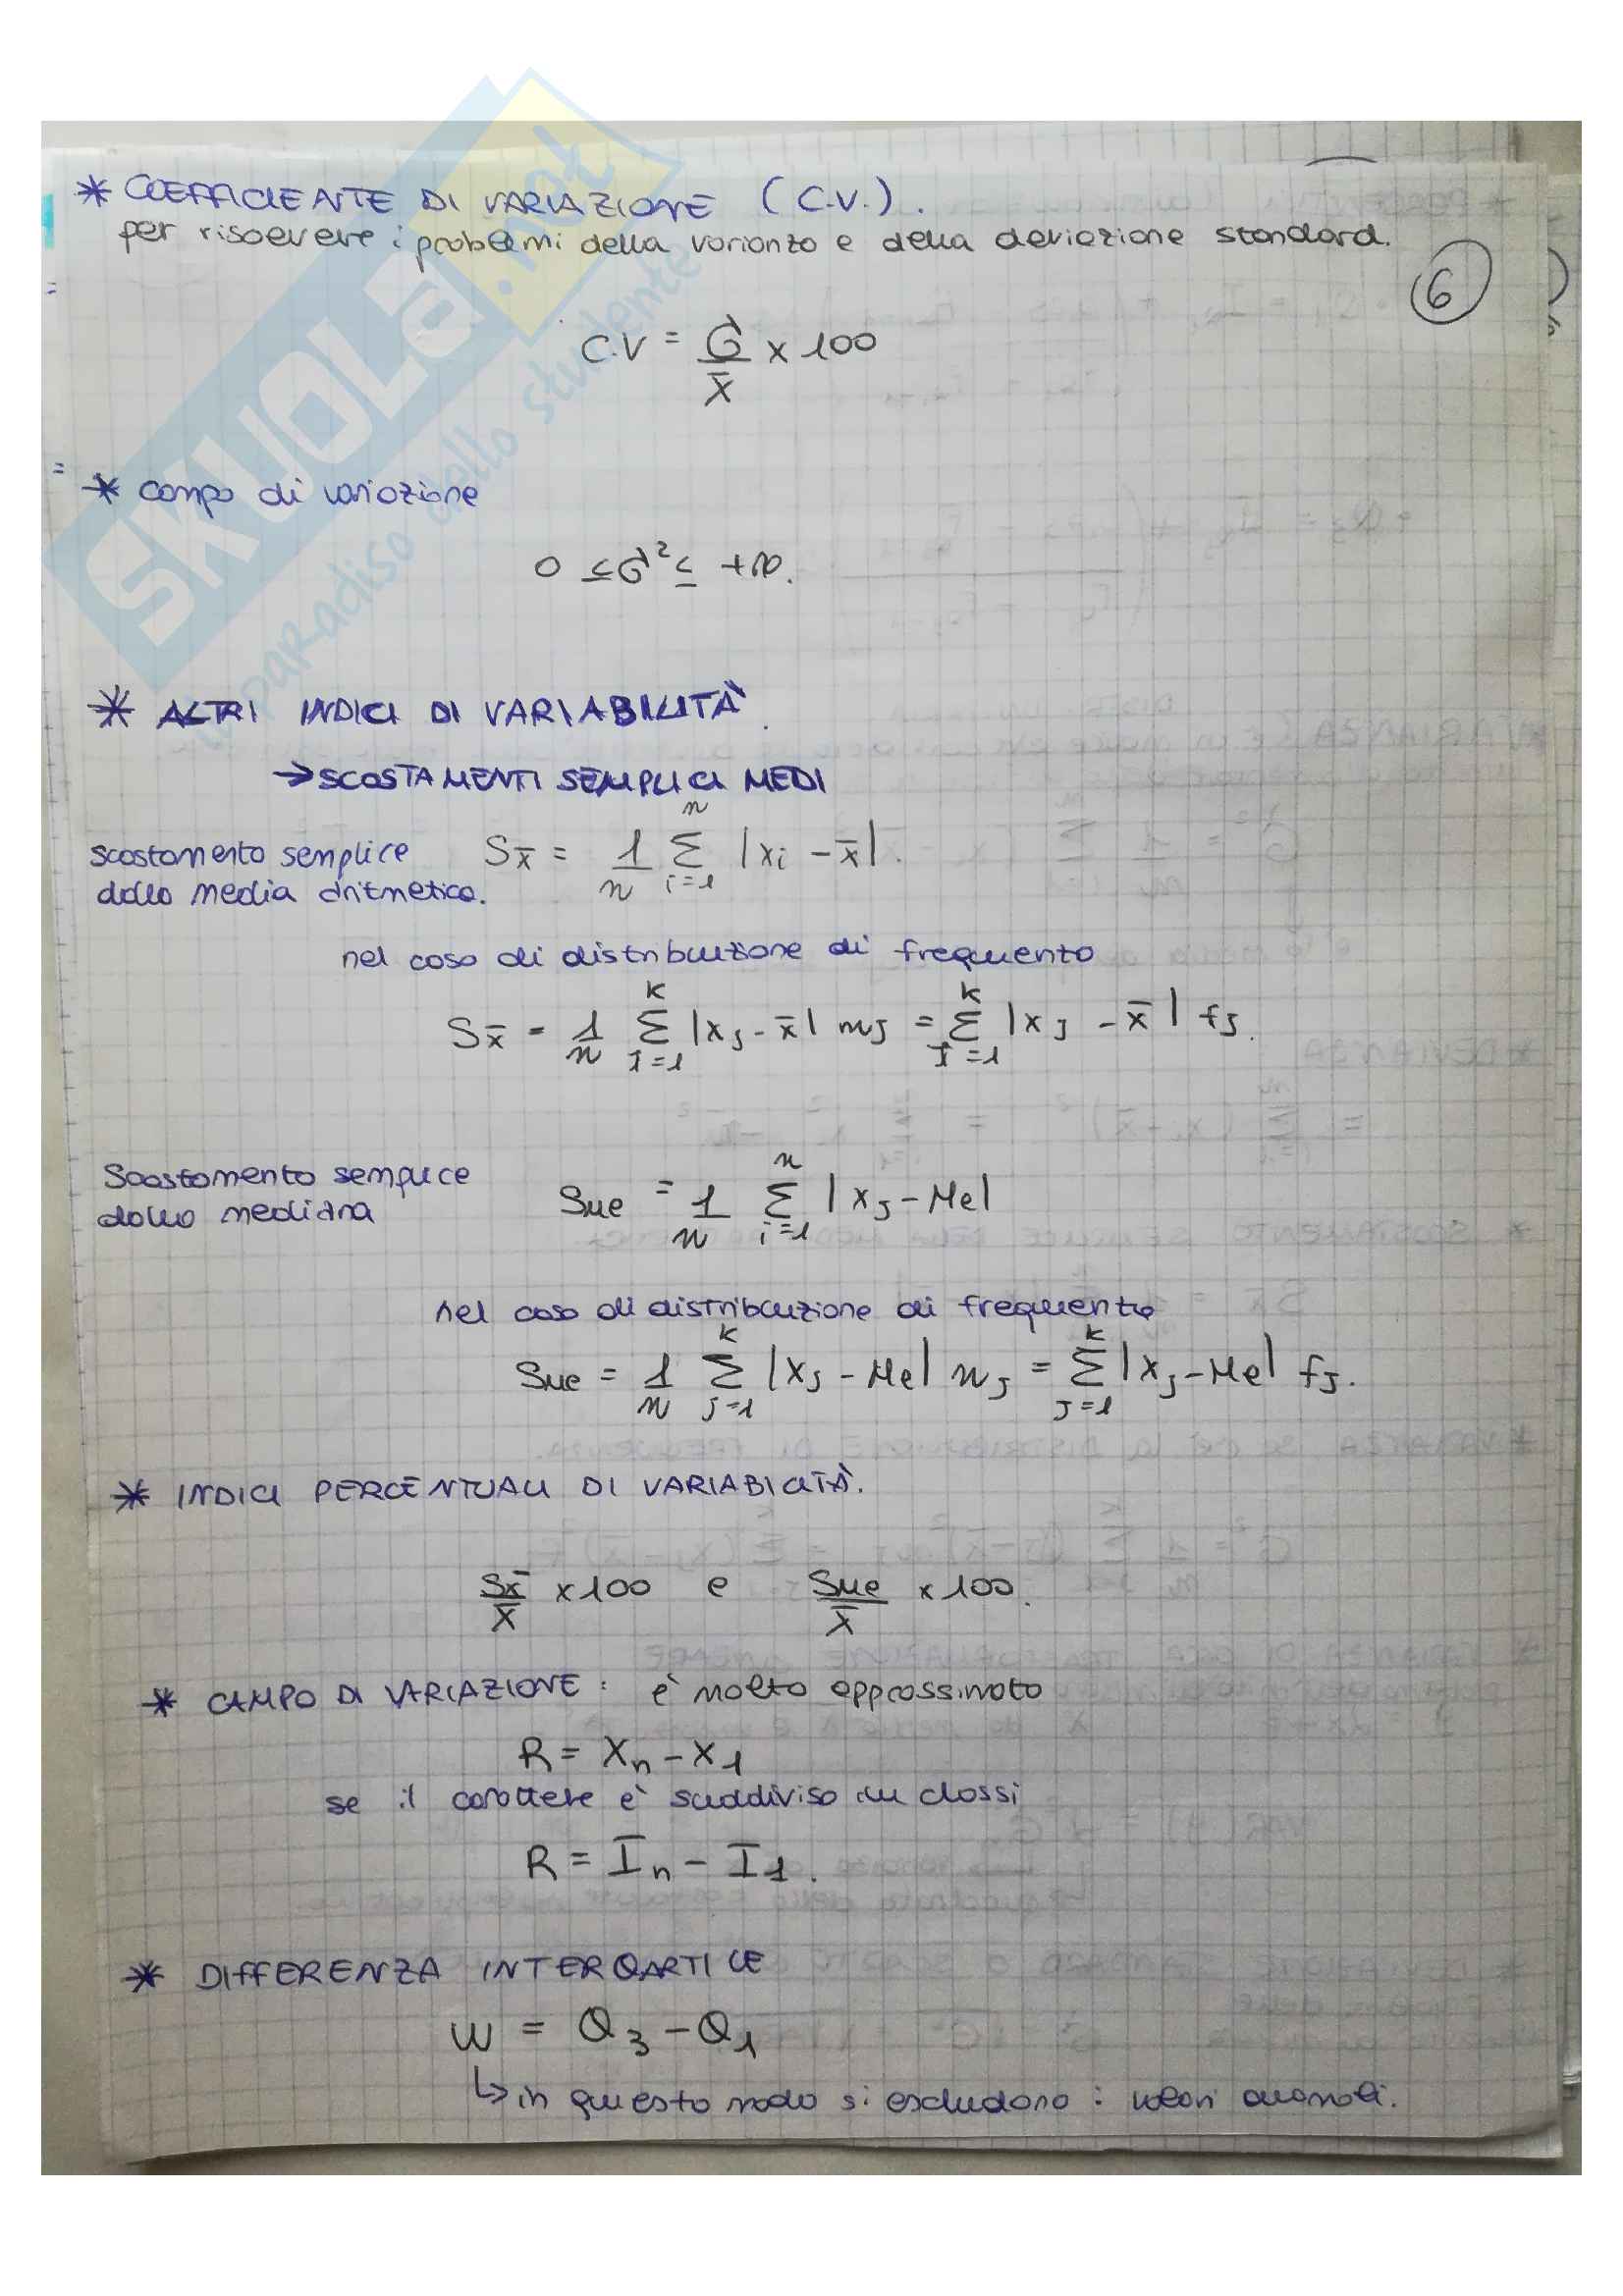 * COEFFICIENTE DI VARIAZIONE (C.V.).
per risolvere i problemi della varianza e della deviazione standard.
6
C.V = σ/x̄ x 100
* campo di variazione
0 ≤ σ² ≤ +∞.
* ALTRI INDICI DI VARIABILITÀ.
→ SCOSTAMENTI SEMPLICI MEDI
scostamento semplice
dalla media aritmetica.
Sx̄ = 1/n Σ_{i=1}^{n} |xi - x̄|.
nel caso di distribuzione di frequenta
Sx̄ = 1/n Σ_{J=1}^{K} |xJ - x̄| nJ = Σ_{J=1}^{K} |xJ - x̄| fJ.
Scostamento semplice
dalla mediana
SMe = 1/n Σ_{i=1}^{n} |xJ - Me|
nel caso di distribuzione di frequenta
SMe = 1/n Σ_{j=1}^{K} |xJ - Me| nJ = Σ_{J=1}^{K} |xJ - Me| fJ.
* INDICI PERCENTUALI DI VARIABILITÀ.
Sx̄/x̄ x 100 e SMe/x̄ x 100.
* CAMPO DI VARIAZIONE: è molto approssimato
R = Xn - X1
se il carattere è suddiviso in classi
R = I̅n - I̅1.
* DIFFERENZA INTERQARTILE
W = Q3 - Q1
↳ in questo modo si escludono i valori anomali.
SKUOLA.net
il paradiso dello studente